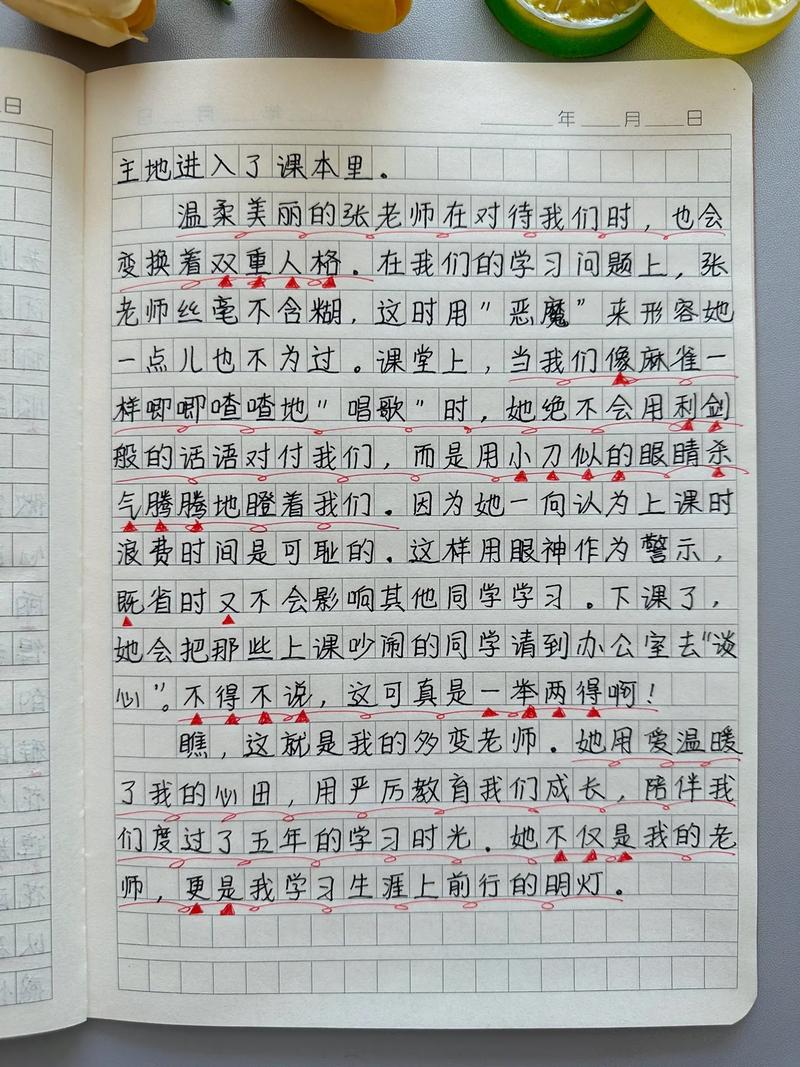 日
年 月 日
主地进入了课本里。
温柔美丽的张老师在对待我们时，也会
变换着双重人格。在我们的学习问题上，张
老师丝毫不含糊，这时用“恶魔”来形容她
一点儿也不为过。课堂上，当我们像麻雀一
样唧唧喳喳地“唱歌”时，她绝不会用利剑
般的话语对付我们，而是用小刀似的眼睛杀
气腾腾地瞪着我们。因为她一向认为上课时
浪费时间是可耻的。这样用眼神作为警示，
既省时又不会影响其他同学学习。下课了，
她会把那些上课吵闹的同学请到办公室去“谈
心”。不得不说，这可真是一举两得啊！
瞧，这就是我的多变老师。她用爱温暖
了我的心田，用严厉教育我们成长，陪伴我
们度过了五年的学习时光。她不仅是我的老
师，更是我学习生涯上前行的明灯。